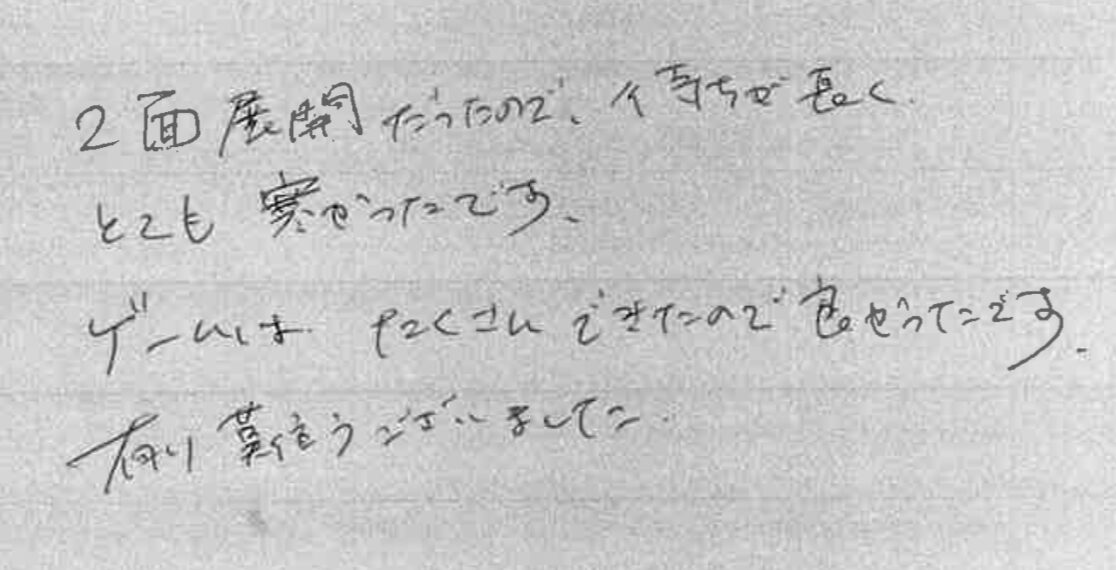 2面展開だったので、待ちが長く
とても寒かったです、
ゲームは たくさんできたので良かったです.
有り難うございました.